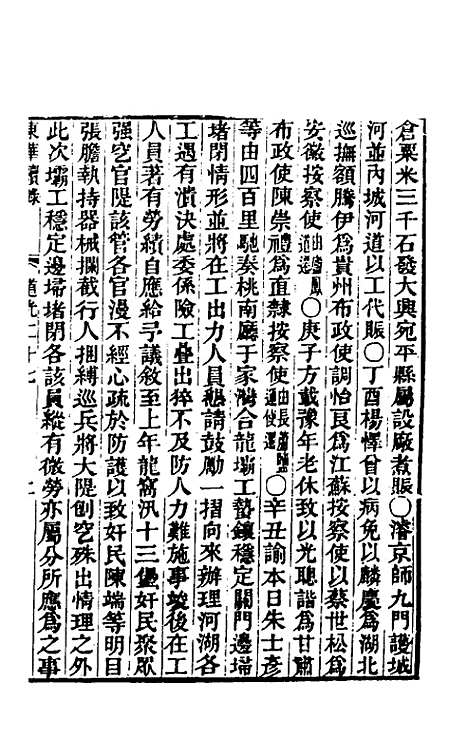 倉粟米三千石發大興宛平縣屬設廠煮賑〇濬京師九門護城
河並內城河道以工代賑〇丁酉楊懌曾以病免以麟慶爲湖北
巡撫額騰伊爲貴州布政使調怡良爲江蘇按察使以蔡世松爲
安徽按察使由廬鳳道遷〇庚子方載豫年老休致以光聰諧爲甘肅
布政使陳崇禮爲直隸按察使由長蘆鹽運使遷〇辛丑諭本日朱士彥
等由四百里馳奏桃南廳于家灣合龍壩工蟄鑲穩定關門邊埽
堵閉情形並將在工出力人員懇請鼓勵一摺向來辦理河湖各
工遇有潰決處委係險工疊出捽不及防人力難施事竣後在工
人員著有勞績自應給予議敘至上年龍窩汛十三堡奸民聚眾
强空官隄該管各官漫不經心疏於防護以致奸民陳端等明目
張膽執持器械攔截行人捆縛巡兵將大隄刨空殊出情理之外
此次壩工穩定邊埽堵閉各該員縱有微勞亦屬分所應爲之事
東華續錄 道光二十七